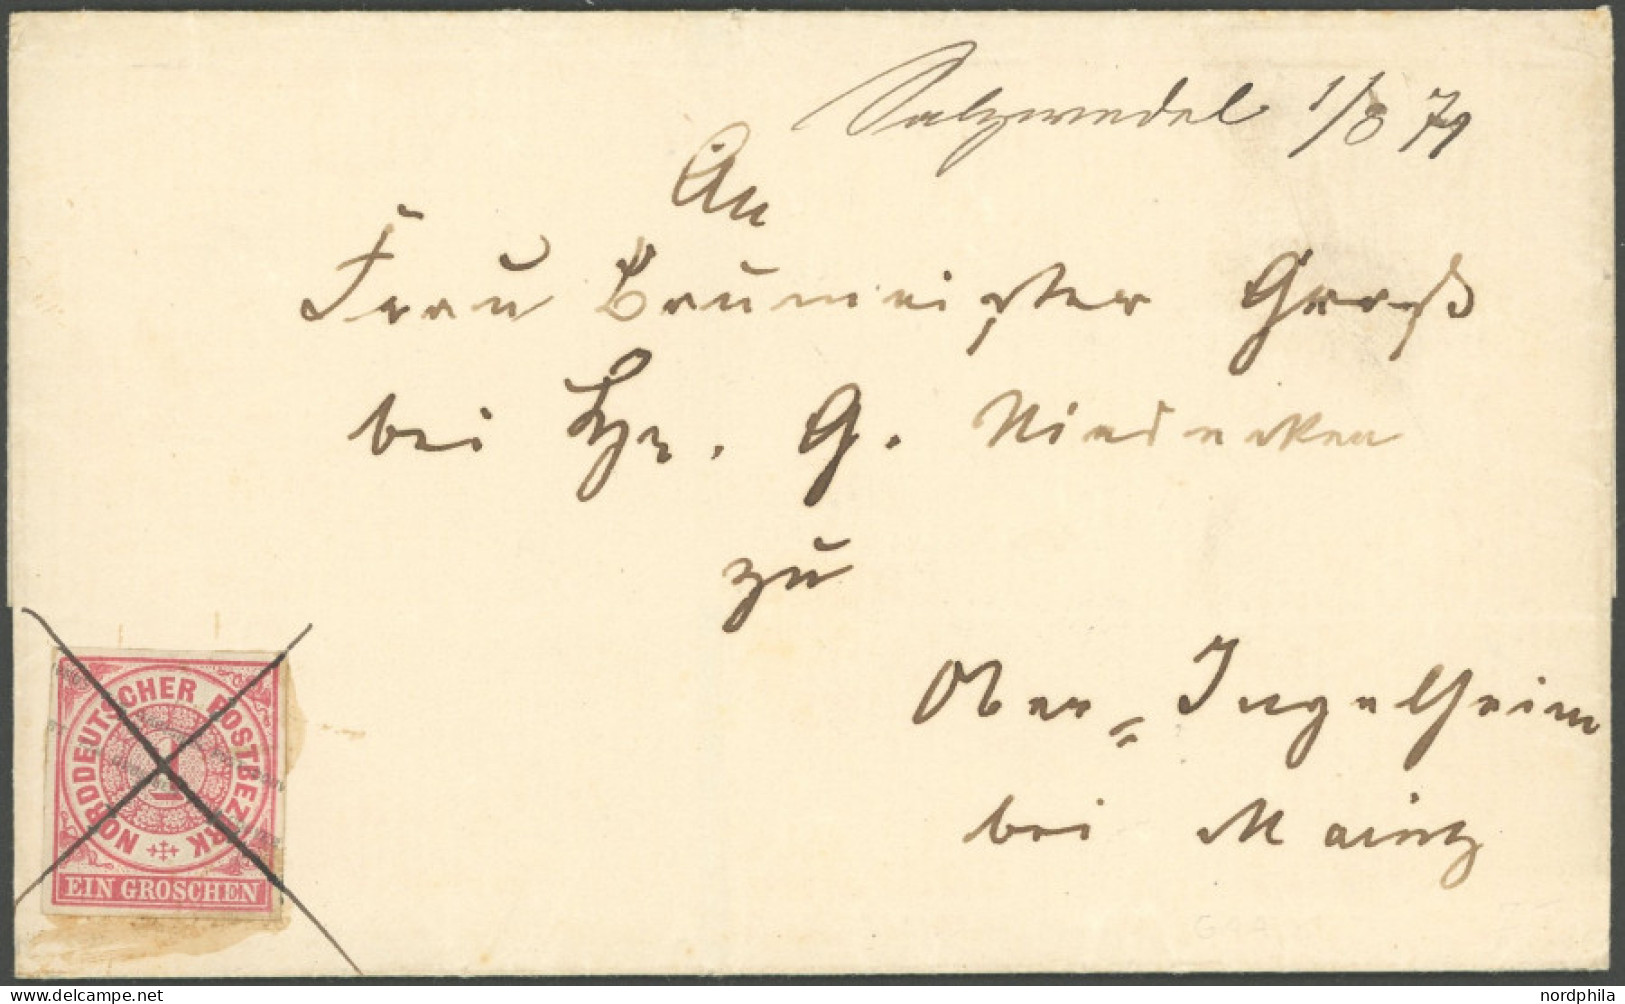 Salzwedel 1/8 71
An
Frau Baumeister Groß
bei Hr. G.
zu
Ober = Ingelheim
bei Mainz
NORDDEUTSCHER POSTBEZIRK
1
EIN GROSCHEN
nordphila